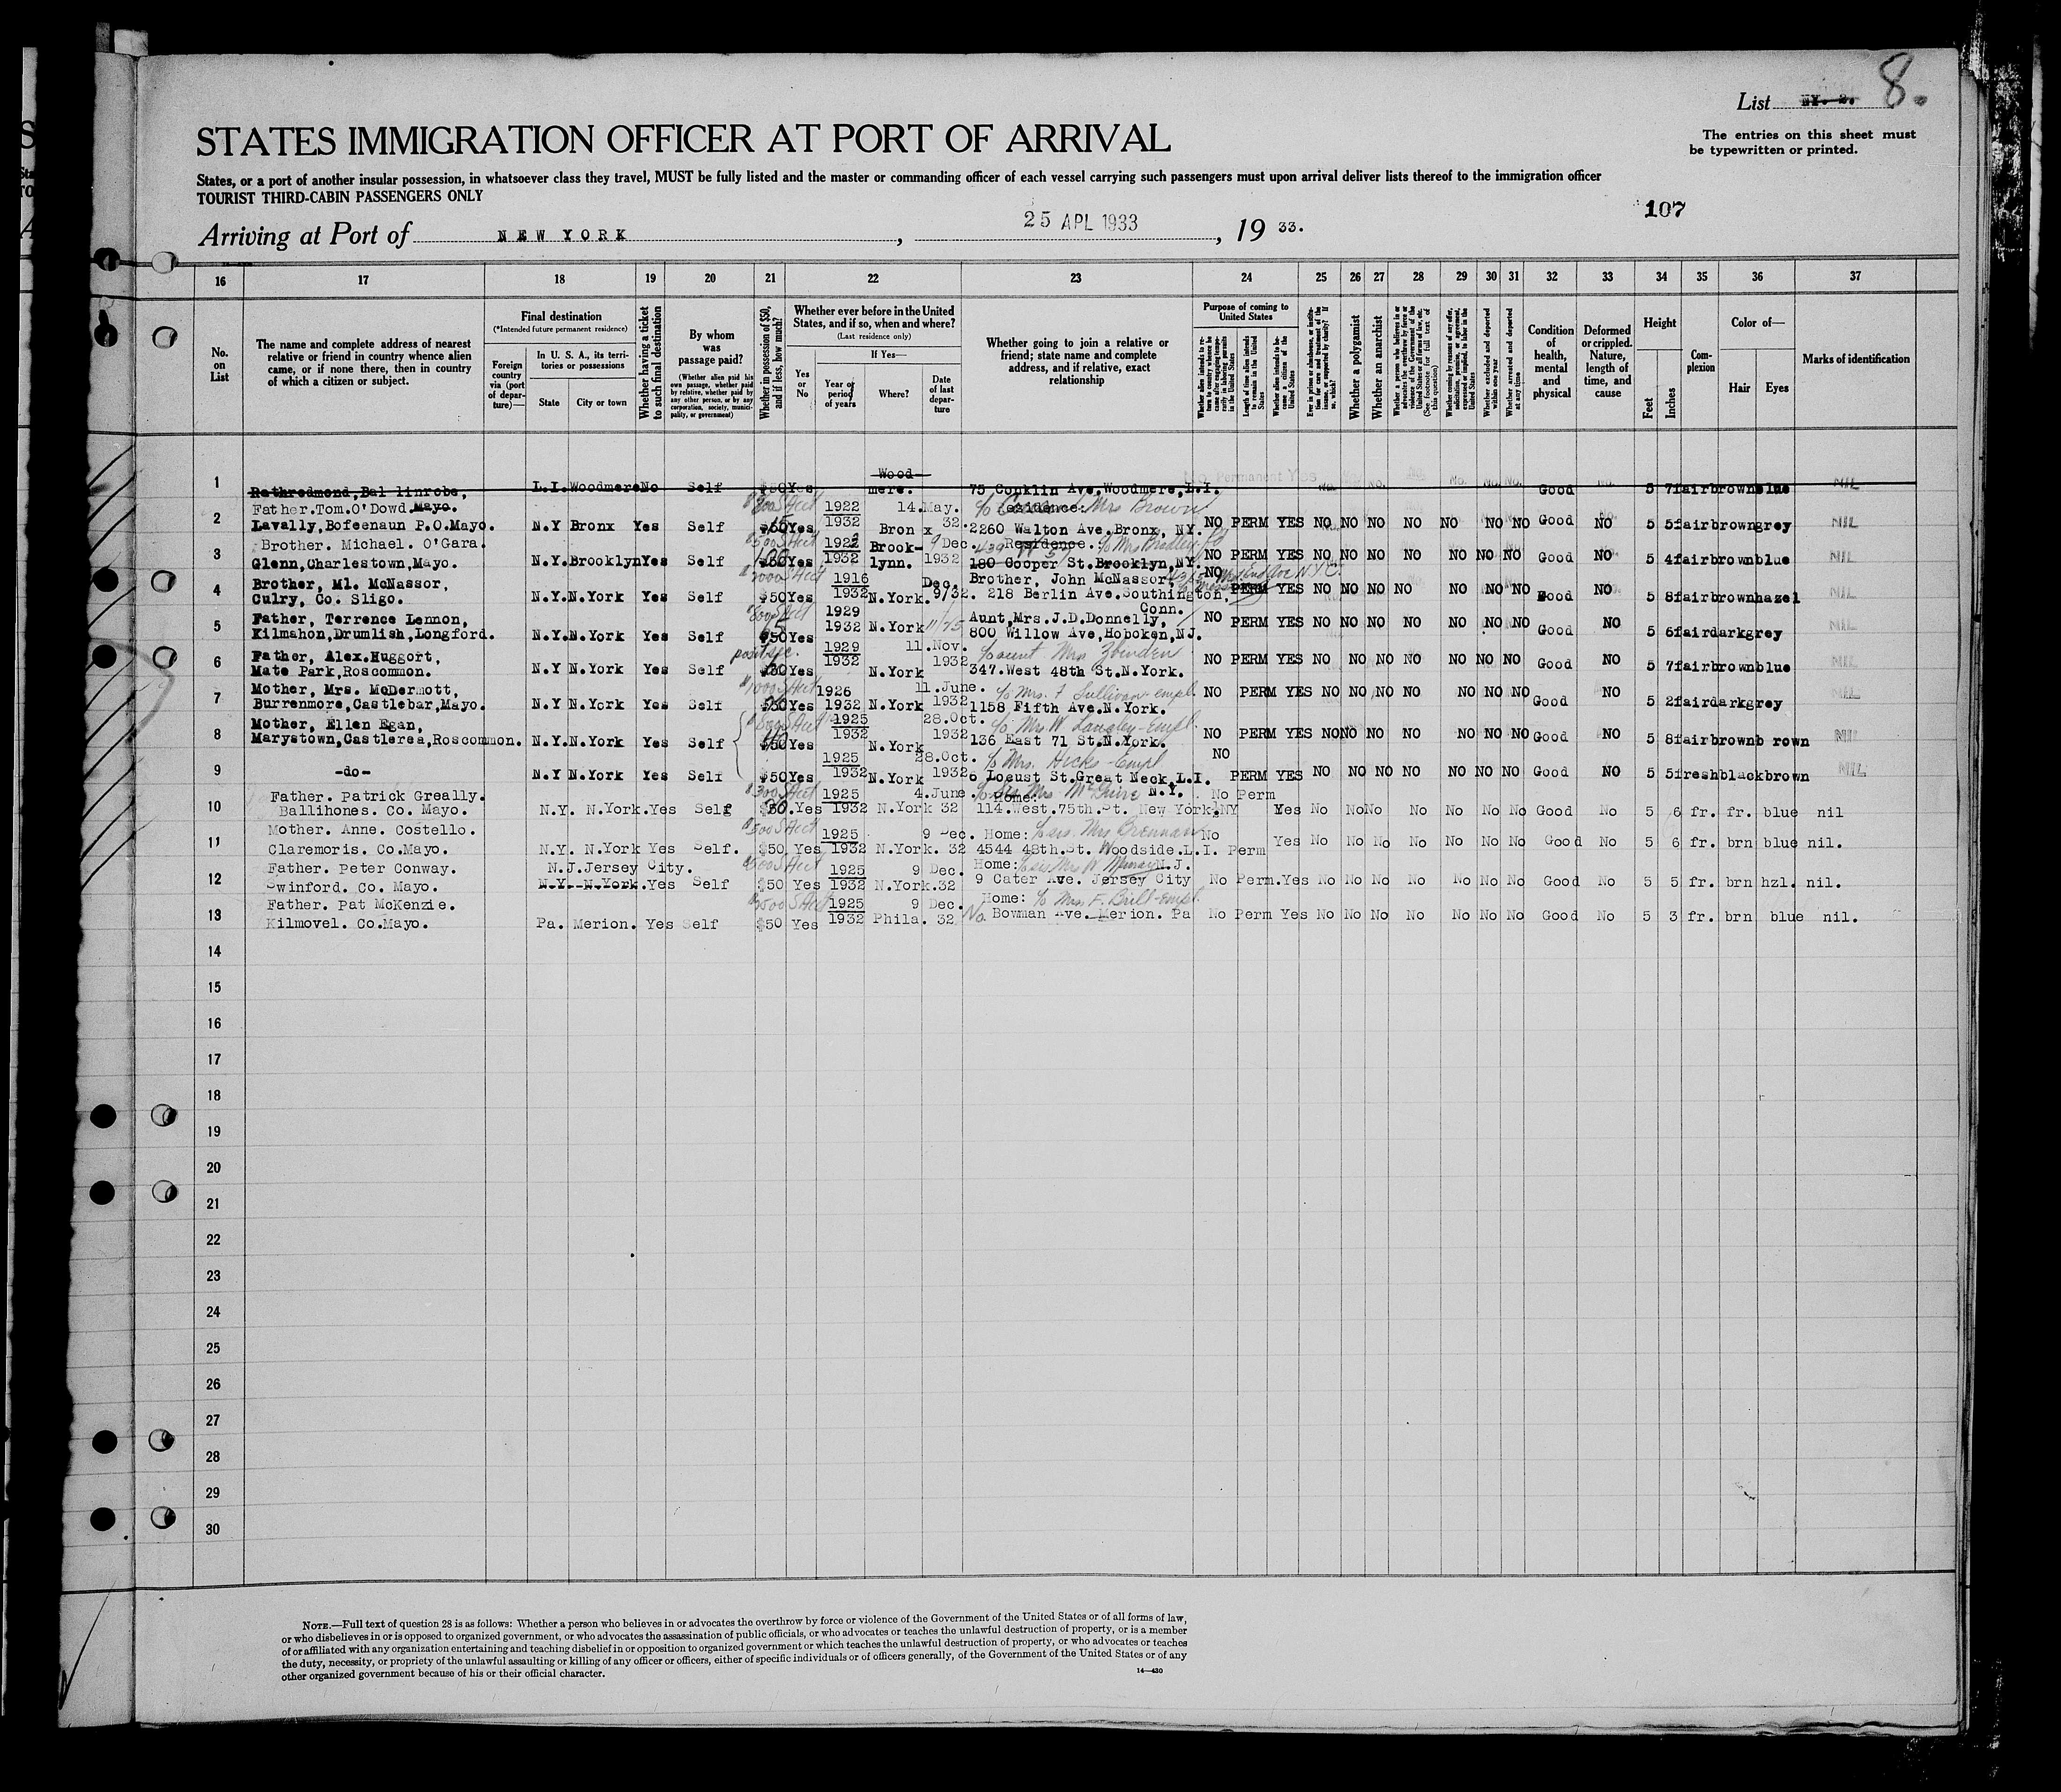 List NY. 2. 8.
STATES IMMIGRATION OFFICER AT PORT OF ARRIVAL
The entries on this sheet must
be typewritten or printed.
States, or a port of another insular possession, in whatsoever class they travel, MUST be fully listed and the master or commanding officer of each vessel carrying such passengers must upon arrival deliver lists thereof to the immigration officer
TOURIST THIRD-CABIN PASSENGERS ONLY
107
Arriving at Port of NEW YORK, 25 APL 1933, 19 33.
16 17 18 19 20 21 22 23 24 25 26 27 28 29 30 31 32 33 34 35 36 37
No. on List
The name and complete address of nearest relative or friend in country whence alien came, or if none there, then in country of which a citizen or subject.
Final destination
(*Intended future permanent residence)
Foreign country via (port of departure)—
In U. S. A., its territories or possessions
State
City or town
Whether having a ticket to such final destination
By whom was passage paid?
(Whether alien paid his own passage, whether paid by relative, whether paid by any other person, or by any corporation, society, municipality, or government)
Whether in possession of $50, and if less, how much?
Whether ever before in the United States, and if so, when and where?
(Last residence only)
Yes or No
If Yes—
Year or period of years
Where?
Date of last departure
Whether going to join a relative or friend; state name and complete address, and if relative, exact relationship
Purpose of coming to United States
Whether alien intends to return to country whence he came after engaging temporarily in laboring pursuits in the United States
Length of time alien intends to remain in the United States
Whether alien intends to become a citizen of the United States
Ever in prison or almshouse, or institution for care and treatment of the insane, or supported by charity? If so, which?
Whether a polygamist
Whether an anarchist
Whether a person who believes in or advocates the overthrow by force or violence of the Government of the United States or all forms of law, etc. (See footnote for full text of this question)
Whether coming by reasons of any offer, solicitation, promise, or agreement, expressed or implied, to labor in the United States
Whether excluded and deported within one year
Whether arrested and deported at any time
Condition of health, mental and physical
Deformed or crippled. Nature, length of time, and cause
Height
Feet
Inches
Complexion
Color of—
Hair
Eyes
Marks of identification
1 Rathredmond, Ballinrobe, L.I. Woodmere No Self $50 Yes Woodmere. 75 Conklin Ave, Woodmere, L.I. Permanent Yes No. No. No. No. No. No. Good No. 5 7 fair brown blue NIL
Father. Tom. O'Dowd. Mayo. 1922 14. May. Residence. Mrs Brown
2 Lavally, Bofeenaun P.O. Mayo. N.Y Bronx Yes Self Yes 1932 Bronx 32. 2260 Walton Ave. Bronx, NY. NO PERM YES NO NO NO NO NO NO NO Good NO 5 5 fair brown grey NIL
Brother. Michael. O'Gara. 1922 Brook- 9 Dec. Residence. Mrs Bradley
3 Glenn, Charlestown, Mayo. N.Y. Brooklyn Yes Self Yes 1932 lynn. 1932 180 Cooper St. Brooklyn, NY. NO PERM YES NO NO NO NO NO NO NO Good NO 5 4 fair brown blue NIL
Brother, Ml. McNassor, 1916 Dec. Brother, John McNassor, NO
4 Culry, Co. Sligo. N.Y. N.York Yes Self $50 Yes 1932 N.York. 9/32. 218 Berlin Ave. Southington, Conn. PERM YES NO NO NO NO NO NO NO Good NO 5 8 fair brown hazel NIL
Father, Terrence Lennon, 1929 Aunt, Mrs. J.D. Donnelly,
5 Kilmahon, Drumlish, Longford. N.Y. N.York Yes Self $50 Yes 1932 N.York 800 Willow Ave, Hoboken, NJ. NO PERM YES NO NO NO NO NO NO NO Good NO 5 6 fair dark grey NIL
Father, Alex. Huggort, 1929 11. Nov. c/o aunt Mrs
6 Mate Park, Roscommon. N.Y N.York Yes Self Yes 1932 N.York 1932 347. West 48th St. N.York. NO PERM YES NO NO NO NO NO NO NO Good NO 5 7 fair brown blue NIL
Mother, Mrs. McDermott, 1926 11. June. c/o Mrs. F Sullivan empl.
7 Burrenmore, Castlebar, Mayo. N.Y N.York Yes Self Yes 1932 N.York 1932 1158 Fifth Ave. N.York. NO PERM YES NO NO NO NO NO NO NO Good NO 5 2 fair dark grey NIL
Mother, Ellen Egan, 1925 28. Oct. c/o Mrs W Langley - Empl
8 Marystown, Castlerea, Roscommon. N.Y. N.York Yes Self $50 Yes 1932 N.York 1932 136 East 71 St. N.York. NO PERM YES NO NO NO NO NO NO NO Good NO 5 8 fair brown b rown NIL
1925 28. Oct. c/o Mrs. Hicks - Empl NO
9 -do- N.Y N.York Yes Self $50 Yes 1932 N.York 1932 6 Locust St. Great Neck, L.I. N.Y. PERM YES NO NO NO NO NO NO NO Good NO 5 5 fresh black brown NIL
Father. Patrick Greally. $300 S Acct 1925 4. June. Home: c/o Mrs. No Perm
10 Ballihones. Co. Mayo. N.Y. N.York. Yes Self Yes 1932 N.York 32 114. West. 75th. St. New York. NY Yes No No No No No No No Good No 5 6 fr. fr. blue nil
Mother. Anne. Costello. $500 S Acct 1925 9 Dec. Home: c/o sis. Mrs Brennan No
11 Claremoris. Co. Mayo. N.Y. N.York Yes Self. $50. Yes 1932 N.York. 32 4544 48th. St. Woodside. L.I. Perm Yes No No No No No No No Good No 5 6 fr. brn blue nil.
Father. Peter Conway. N.J. Jersey City. 1925 9 Dec. Home: c/o sis Mrs W. Murray N.J.
12 Swinford. Co. Mayo. N.Y. N.York. Yes Self $50 Yes 1932 N.York. 32 9 Cater Ave. Jersey City No Perm. Yes No No No No No No No Good No 5 5 fr. brn hzl. nil.
Father. Pat McKenzie. 1925 9 Dec. Home: c/o Mrs F. Brill - empl.
13 Kilmovel. Co. Mayo. Pa. Merion. Yes Self $50 Yes 1932 Phila. 32 No. Bowman Ave. Merion. Pa No Perm Yes No No No No No No No Good No 5 3 fr. brn blue nil.
14
15
16
17
18
19
20
21
22
23
24
25
26
27
28
29
30
NOTE.—Full text of question 28 is as follows: Whether a person who believes in or advocates the overthrow by force or violence of the Government of the United States or of all forms of law,
or who disbelieves in or is opposed to organized government, or who advocates the assassination of public officials, or who advocates or teaches the unlawful destruction of property, or is a member
of or affiliated with any organization entertaining and teaching disbelief in or opposition to organized government or which teaches the unlawful destruction of property, or who advocates or teaches
the duty, necessity, or propriety of the unlawful assaulting or killing of any officer or officers, either of specific individuals or of officers generally, of the Government of the United States or of any
other organized government because of his or their official character.
14—430